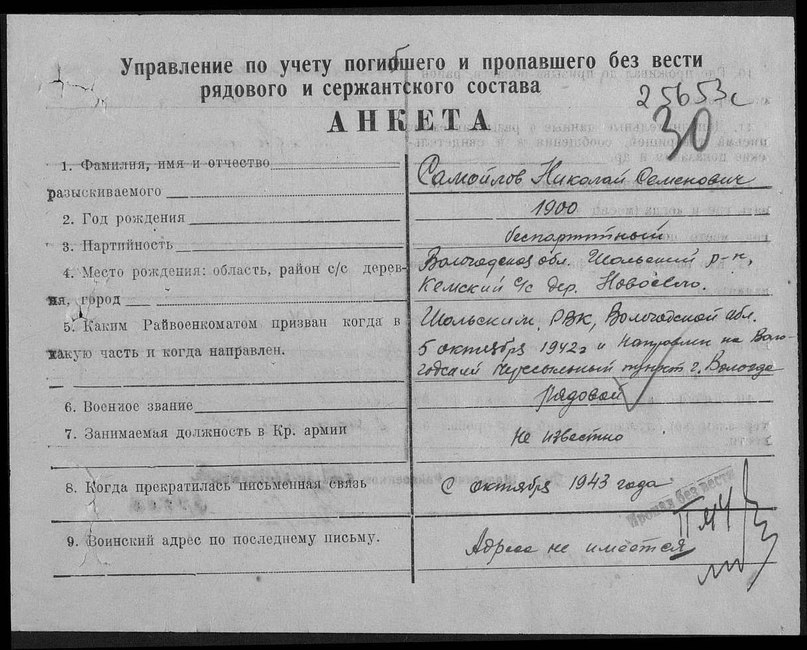 Управление по учету погибшего и пропавшего без вести
рядового и сержантского состава
25653с
АНКЕТА
30
1. Фамилия, имя и отчество
разыскиваемого
Самойлов Николай Семенович
2. Год рождения
1900
3. Партийность
беспартийный
4. Место рождения: область, район с/с дерев-
ня, город
Вологодская обл. Шольский р-н,
Кемский с/с дер.
5. Каким Райвоенкоматом призван когда в
какую часть и когда направлен.
Шольским, РВК, Вологодской обл.
5 октября 1942г и направлен на Воло-
годский пункт г. Вологда
6. Военное звание
рядовой
7. Занимаемая должность в Кр. армии
Не известно
8. Когда прекратилась письменная связь
С октября 1943 года
Пропал без вести
9. Воинский адрес по последнему письму.
Адреса не имеется